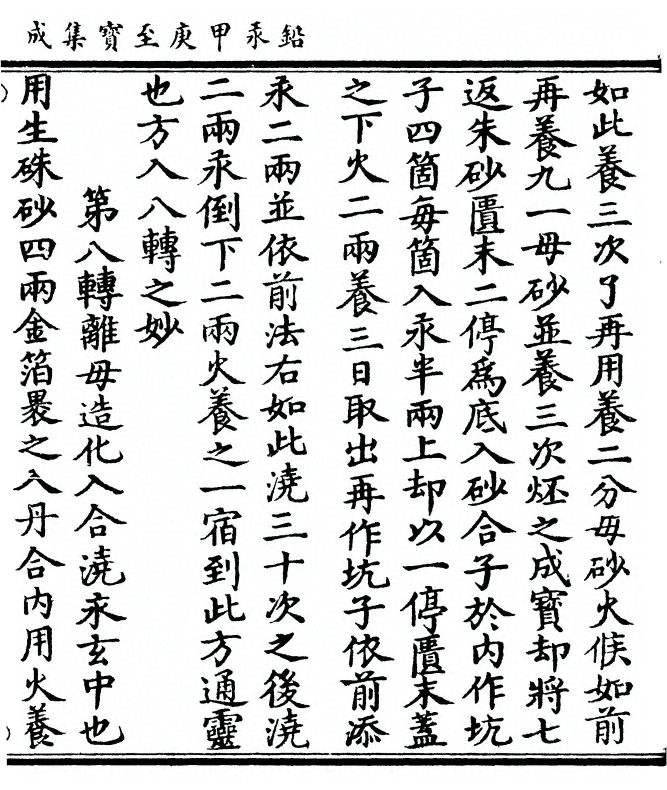 鉛汞甲庚至寶集成
如此養三次了再用養二分母砂火候如前
再養九一母砂並養三次之成寶却將七
返朱砂匱末二停爲底入砂合子於內作坑
子四箇每箇入汞半兩上却以一停匱末蓋
之下火二兩養三日取出再作坑子依前添
汞二兩並依前法右如此澆三十次之後澆
二兩汞倒下二兩火養之一宿到此方通靈
也方入八轉之妙
第八轉離母造化入合澆汞玄中也
用生硃砂四兩金箔褁之入丹合內用火養